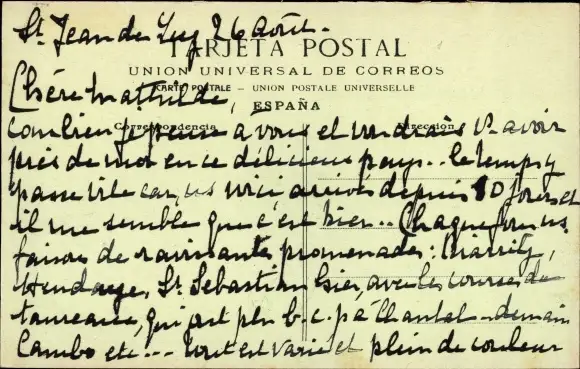 St Jean de Luz 26 Août.
TARJETA POSTAL
UNION UNIVERSAL DE CORREOS
CARTE POSTALE – UNION POSTALE UNIVERSELLE
ESPAÑA
Correspondencia
Dirección
Chère Mathilde,
combien je pense a vous et voudrais vs avoir
près de moi en ce délicieux pays.. le temps y
passe vite car, ns voici arrivés depuis 10 jours et
il me semble que c'est hier.. Chaque jour ns
faisons de ravissantes promenades: Biarritz,
Hendaye, St Sebastian hier, avec les courses de
taureaux, qui ont plu b. c. p à demain
Cambo etc... tout est varié et plein de couleur